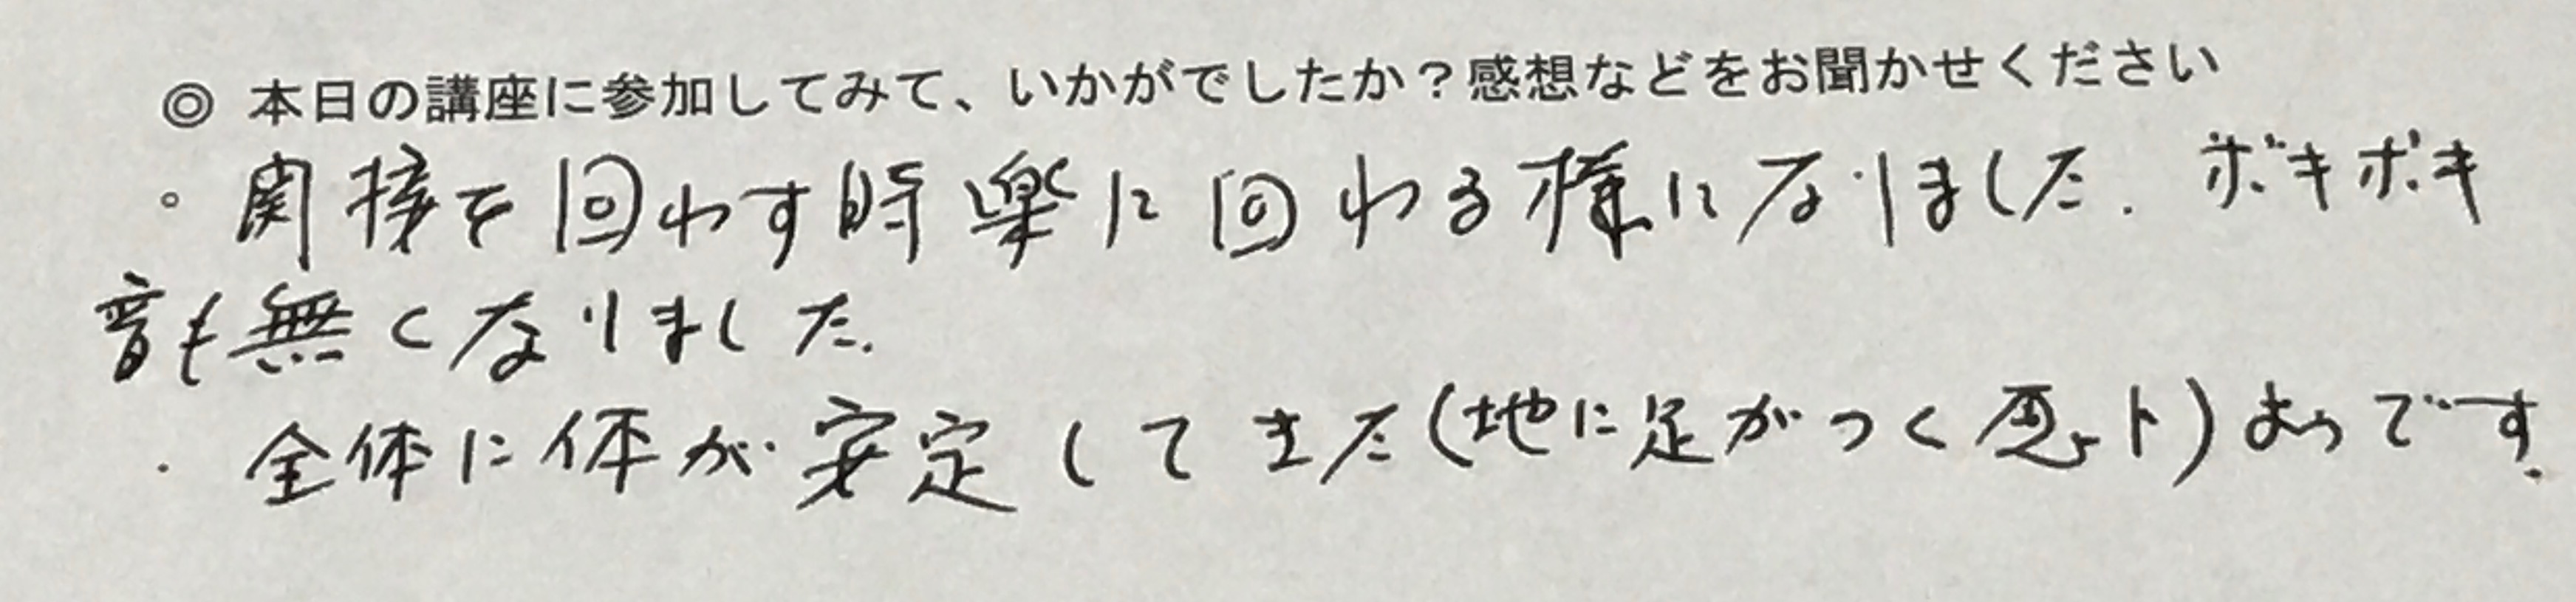 ◎ 本日の講座に参加してみて、いかがでしたか?感想などをお聞かせください
。関接を回わす時楽に回わる様になりました. ボキボキ
音も無くなりました.
・全体に体が安定してきた(地に足がつく) ようです.